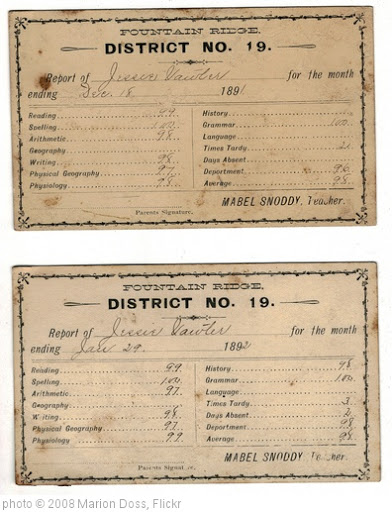 FOUNTAIN RIDGE,
DISTRICT NO. 19.
Report of Jessie Lawler for the month
ending Dec. 18 1891
Reading 99
Spelling 100
Arithmetic 98
Geography
Writing 98
Physical Geography 97
Physiology 98
History
Grammar 100
Language
Times Tardy 21
Days Absent
Department 96
Average 98
MABEL SNODDY, Teacher.
Parents Signature.
FOUNTAIN RIDGE,
DISTRICT NO. 19.
Report of Jessie Lawler for the month
ending Jan 29. 1892
Reading 99
Spelling 100
Arithmetic 97
Geography
Writing 98
Physical Geography 97
Physiology 99
History 98
Grammar 100
Language
Times Tardy 3
Days Absent 2
Department 98
Average 98
MABEL SNODDY, Teacher.
Parents Signature.
photo © 2008 Marion Doss, Flickr